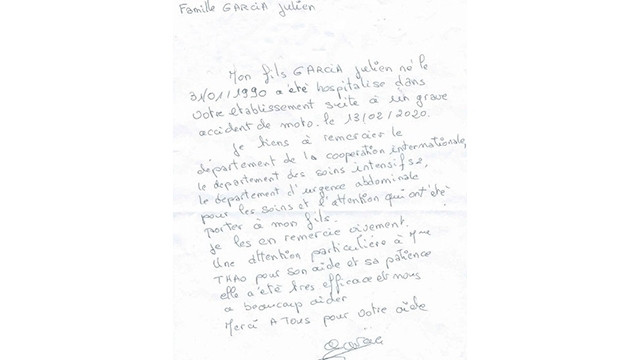 Famille GARCIA Julien
Mon fils GARCIA Julien né le
31/01/1990 a été hospitalise dans
votre établissement suite à un grave
accident de moto. le 13/02/2020.
Je tiens à remercier le
département de la cooperation internationale,
le departement des soins intensifs2,
le departement d'urgence abdominale
pour les soins et l'attention qui ont été
porter à mon fils.
Je les en remercie vivement.
Une attention particulière à Mme
THAO pour son aide et sa patience
elle a été très efficace et nous
a beaucoup aider
Merci A Tous pour votre aide